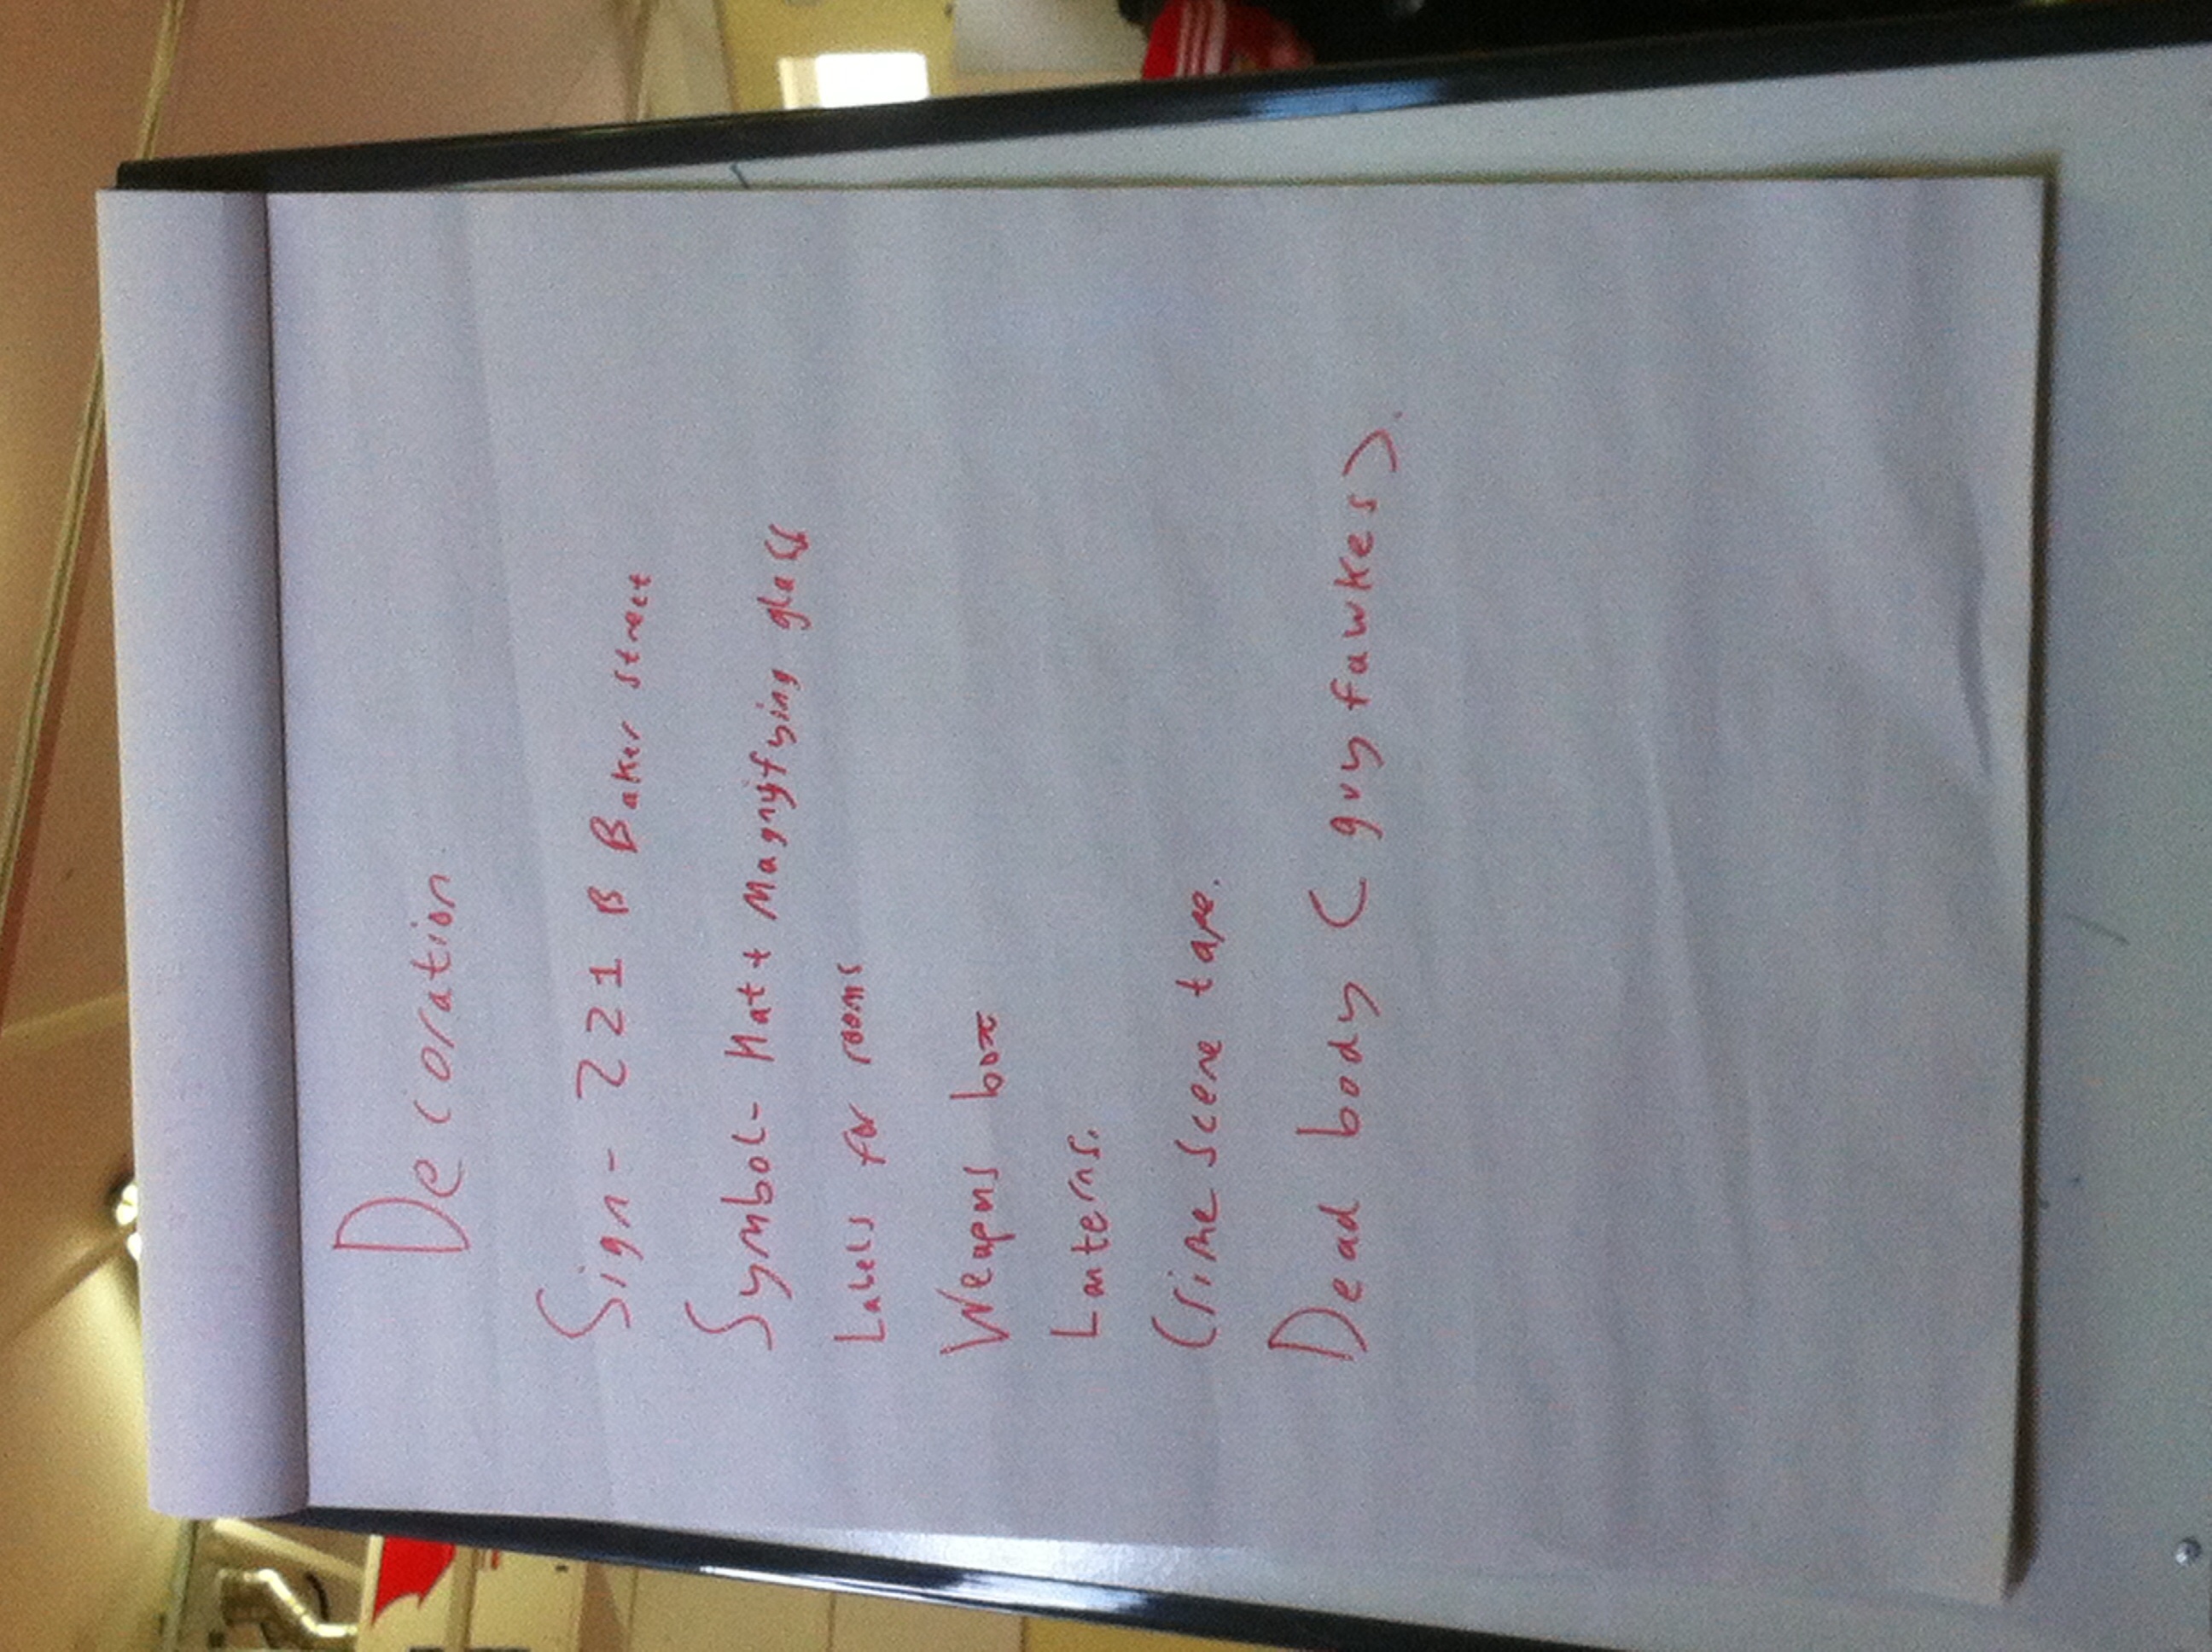 Decoration
Sign - 221 B Baker street
Symbol - Hat + Magnifying glass
Labels for rooms
Weapons box
Lanterns.
Crime scene tape.
Dead body (guy fawkes).